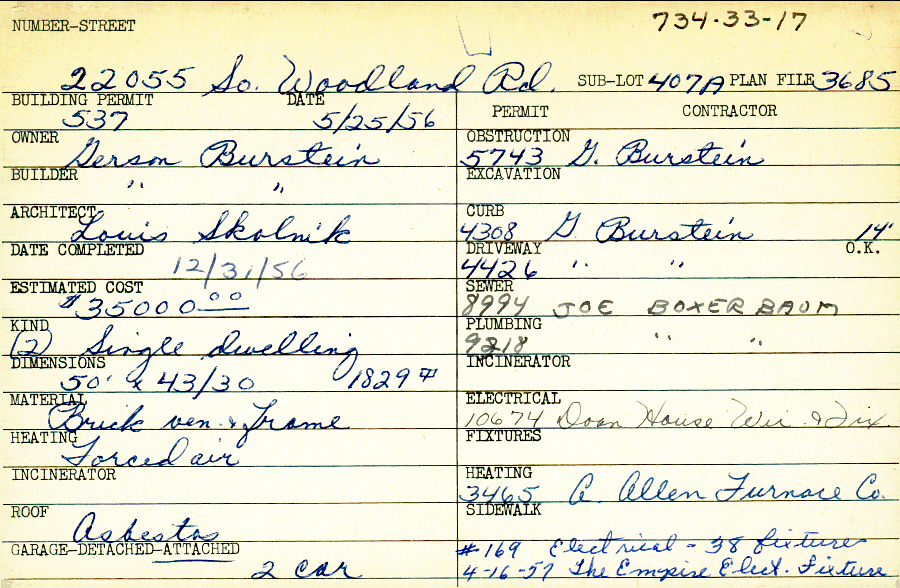 734-33-17
NUMBER-STREET
22055 So. Woodland Rd. SUB-LOT 407A PLAN FILE 3685
BUILDING PERMIT DATE
537 5/25/56
OWNER
Gerson Burstein
BUILDER
" "
ARCHITECT
Louis Skolnik
DATE COMPLETED
12/31/56
ESTIMATED COST
$35000.00
KIND
(2) Single dwelling
DIMENSIONS
50' x 43/30 1829 #
MATERIAL
Brick ven. & Frame
HEATING
Forced air
INCINERATOR
ROOF
Asbestos
GARAGE-DETACHED-ATTACHED
2 car
PERMIT CONTRACTOR
OBSTRUCTION
5743 G. Burstein
EXCAVATION
CURB
4308 G Burstein 14'
DRIVEWAY O.K.
4426 " "
SEWER
8994 JOE BOXERBAUM
PLUMBING
9218 " "
INCINERATOR
ELECTRICAL
10674 Doan House Wir. & Fix.
FIXTURES
HEATING
3465 A. Allen Furnace Co.
SIDEWALK
#169 Electrical - 38 fixture
4-16-57 The Empire Elect. Fixture